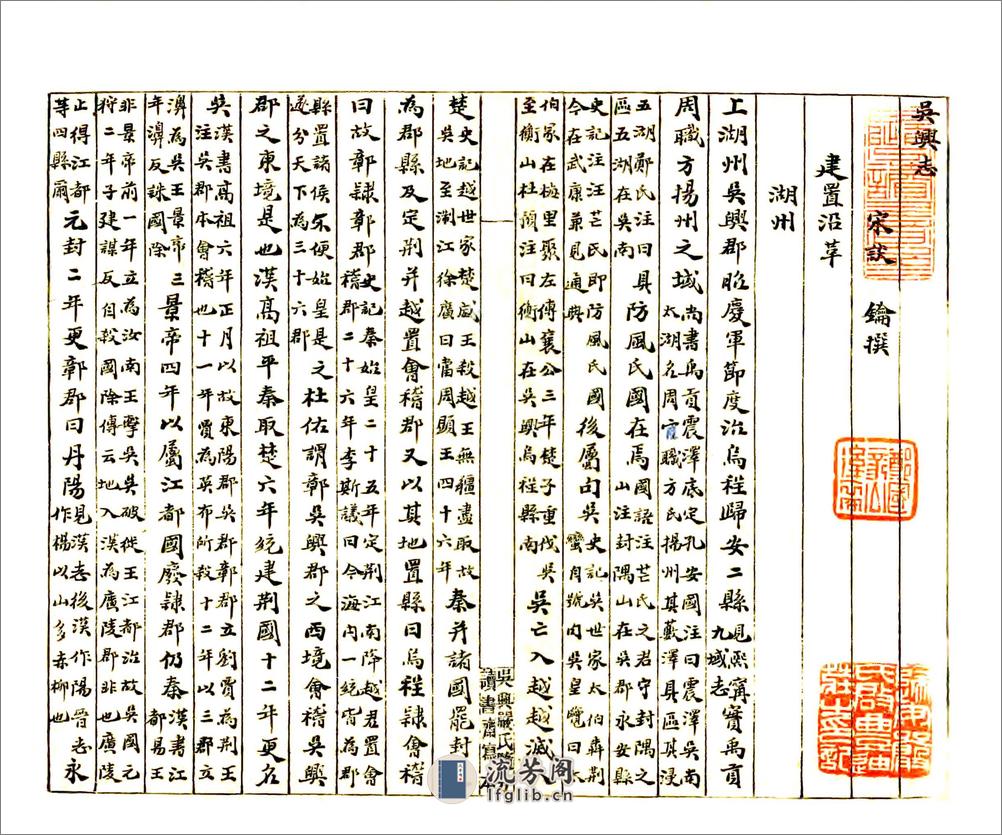 吳興志
宋談 鑰撰
建置沿革
湖州
上湖州吳興郡昭慶軍節度治烏程歸安二縣見熙寧九域志實禹貢
周職方揚州之域尚書禹貢震澤底定孔安國注曰震澤吳南太湖名周官職方氏揚州其藪澤具區其浸
五湖鄭氏注曰具區五湖在吳南防風氏國在焉國語注芒氏之君守封隅之山注封隅山在吳郡永安縣
史記注汪芒氏即防風氏國今在武康兼見通典後屬句吳史記吳世家太伯犇荆蠻自號句吳皇覽曰太
伯冢在梅里聚左傳襄公三年楚子重伐吳至衡山杜預注曰衡山在吳興烏程縣南吳亡入越越滅入
吳興嚴氏
讀書齋寫本
楚史記越世家楚威王殺越王無疆盡取故吳地至浙江徐廣曰當周顯王四十六年秦并諸國罷封
為郡縣及定荆并越置會稽郡又以其地置縣曰烏程隸會稽
曰故鄣隸鄣郡史記秦始皇二十五年定荆江南降越君置會稽郡二十六年李斯議曰今海内一統皆為郡
縣置諸侯不便始皇是之遂分天下為三十六郡杜佑謂鄣吳興郡之西境會稽吳興
郡之東境是也漢高祖平秦取楚六年統建荆國十二年更名
吳漢書高祖六年正月以故東陽郡吳郡鄣郡立劉賈為荆王注吳郡本會稽也十一年賈為英布所殺十二年以三郡立
濞為吳王景帝三年濞反誅國除景帝四年以屬江都國廢隸郡仍秦漢書江都易王
非景帝前一年立為汝南王擊吳吳破徙王江都治故吳國元狩二年子建謀反自殺國除傳云地入漢為廣陵郡非也廣陵
止得江都等四縣爾元封二年更鄣郡曰丹陽見漢志後漢作陽晉志永作楊以山多赤柳也
流芳阁
lfglib.cn